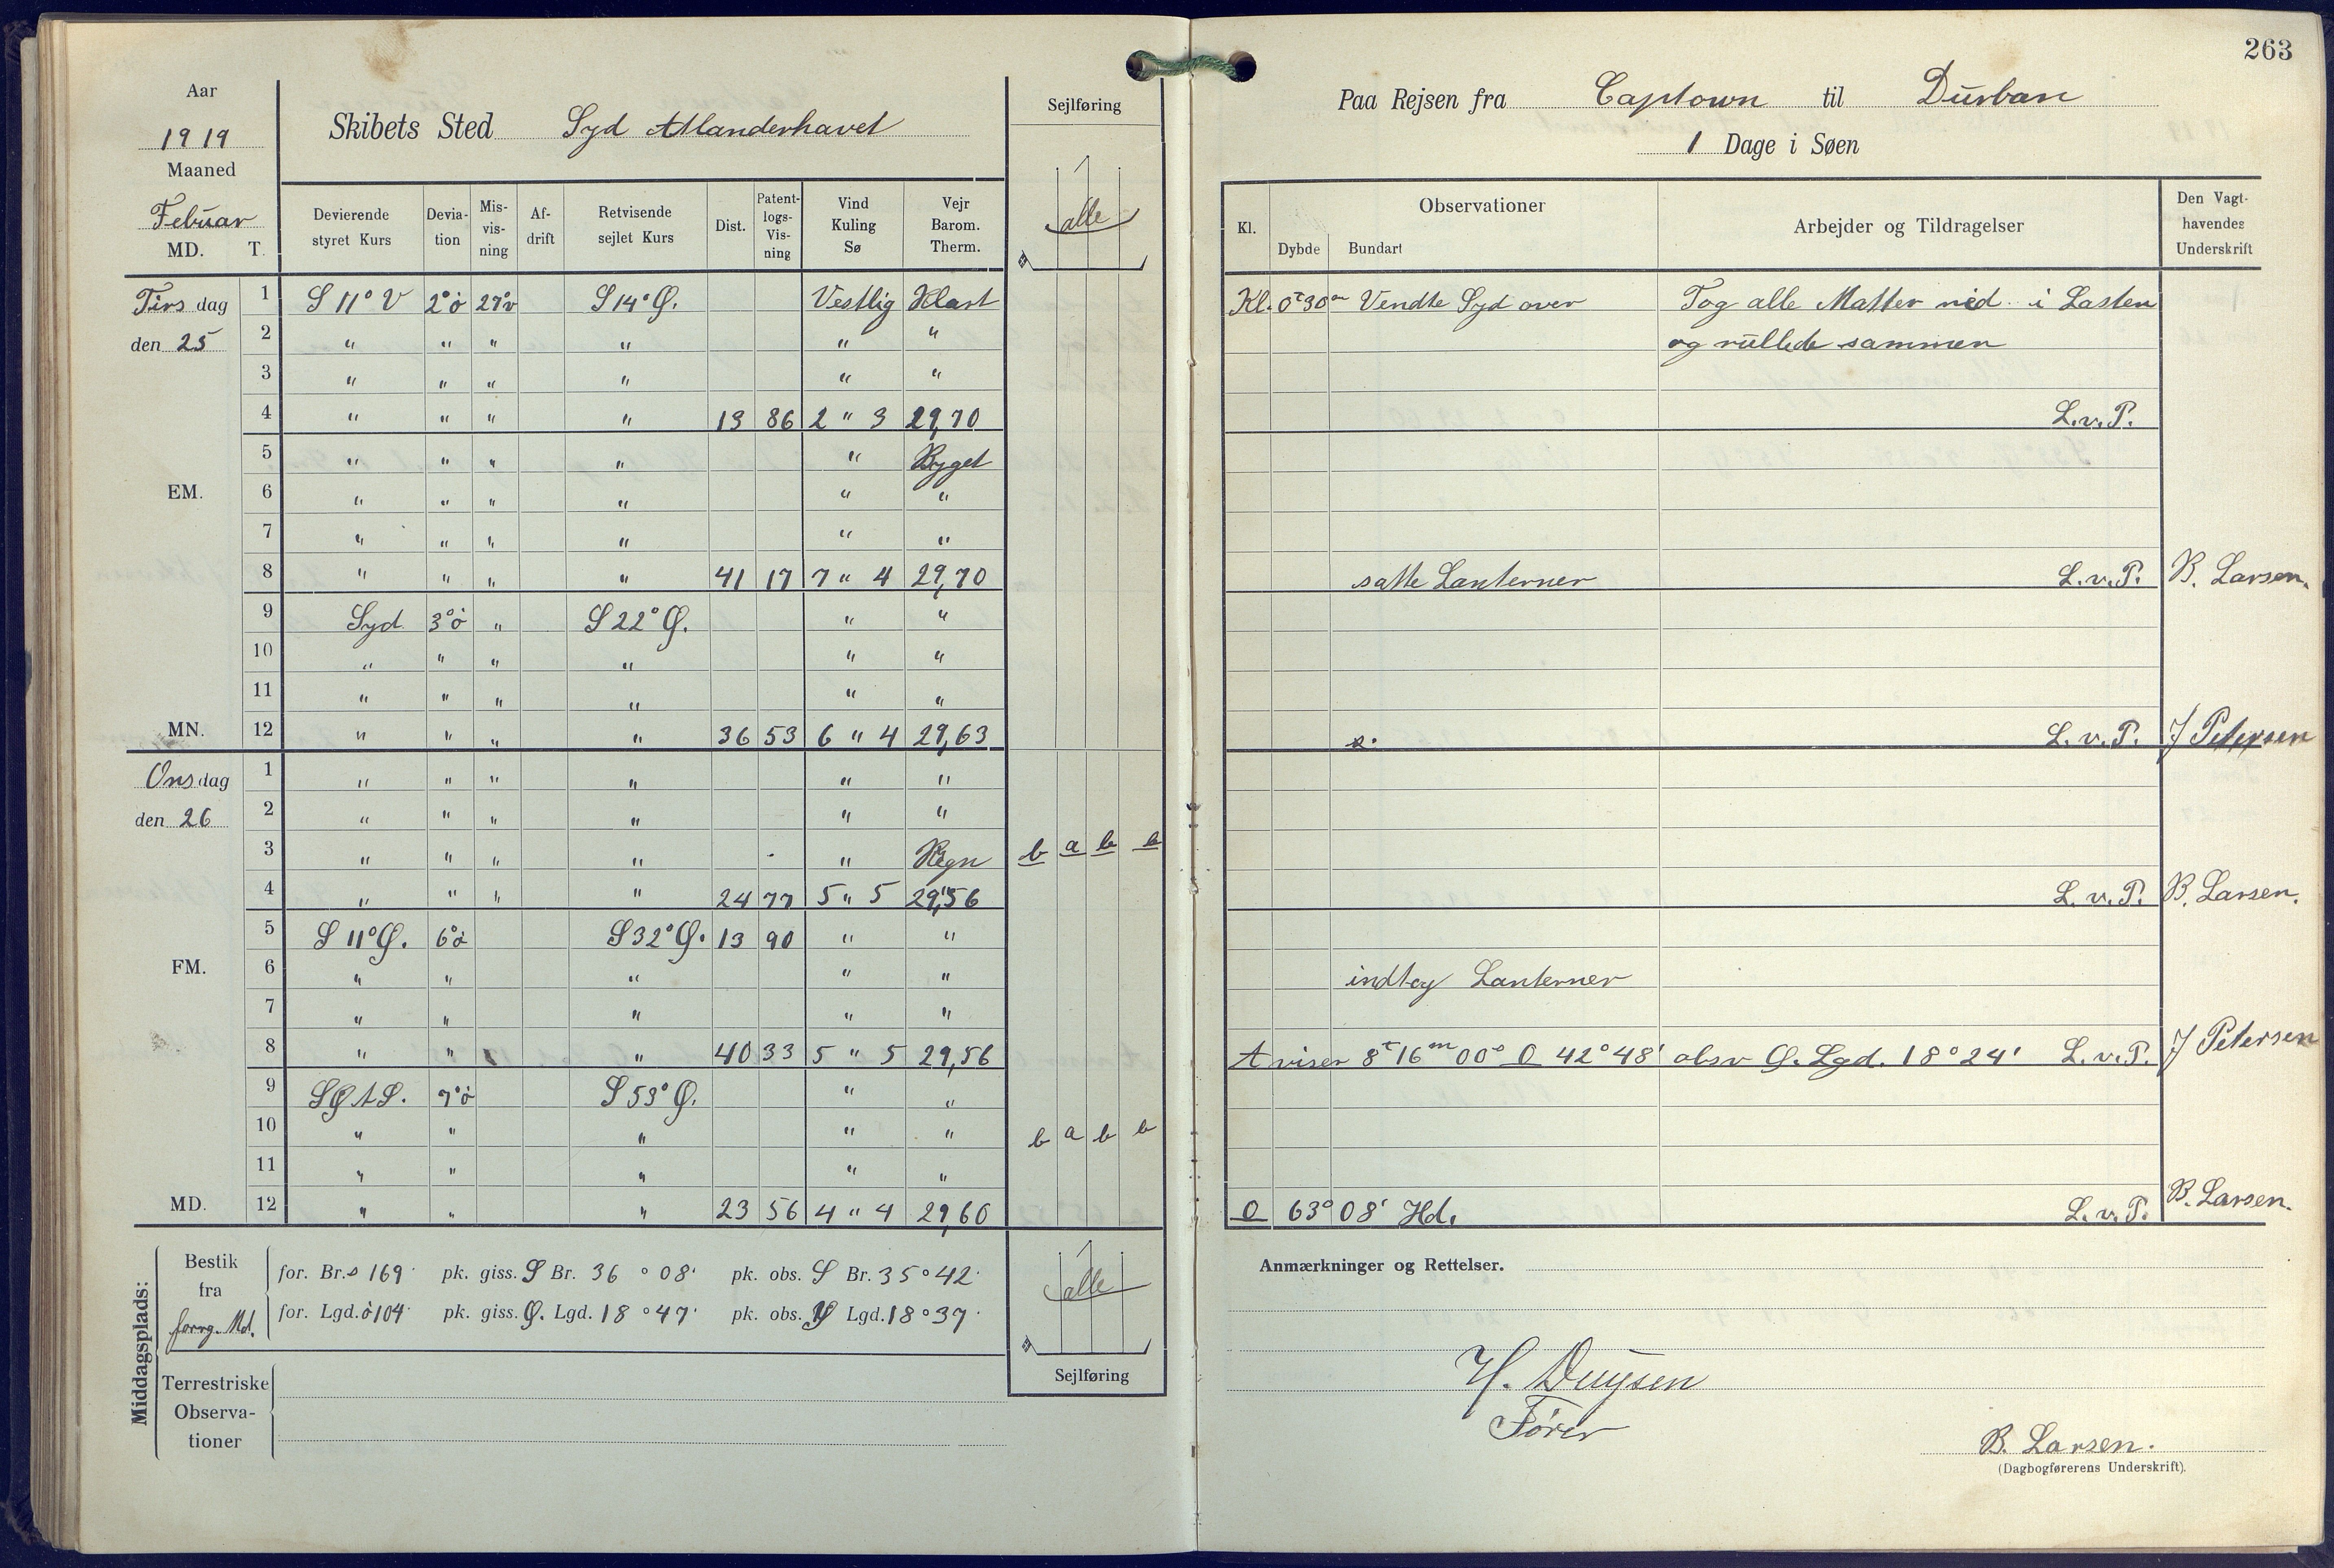 263
Aar
1919
Maaned
Febuar
MD. T.
Skibets Sted Syd Atlanderhavet
Sejlføring
alle
Paa Rejsen fra Captown til Durban
1 Dage i Søen
Devierende styret Kurs | Devia-tion | Mis-vis-ning | Af-drift | Retvisende sejlet Kurs | Dist. | Patent-logs-Vis-ning | Vind Kuling Sø | Vejr Barom. Therm.
Kl. | Observationer | Dybde | Bundart | Arbejder og Tildragelser | Den Vagt-havendes Underskrift
Tirs dag 1 S 11° V 2° ö 27° v S 14° Ø. Vestlig Klart Kl. 0t 30m Vendte Syd over Tog alle Matter ned i Lasten
den 25 2 " " " " " " og rullede sammen
3 " " " " " "
4 " " " " 13 86 2 " 3 29,70 L.v.P.
5 " " " " " Byget
EM. 6 " " " " " "
7 " " " " " "
8 " " " " 41 17 7 " 4 29,70 satte Lanterner L.v.P. B. Larsen.
9 Syd 3° ö " S 22° Ø. " "
10 " " " " " "
11 " " " " " "
MN. 12 " " " " 36 53 6 " 4 29,63 L.v.P. J Petersen
Ons dag 1 " " " " " "
den 26 2 " " " " " "
3 " " " " " Regn b a b b
4 " " " " 24 77 5 " 5 29,56 L.v.P. B. Larsen.
5 S 11° Ø. 6° ö S 32° Ø. 13 90 " "
FM. 6 " " " " " indtog Lanterner
7 " " " " "
8 " " " 40 33 5 " 5 29,56 A viser 8t 16m 00s O 42° 48' obsv Ø. Lgd. 18° 24' L.v.P. J Petersen
9 SØ t S. 7° ö S 53° Ø. " "
10 " " " " " b a b b
11 " " " " "
MD. 12 " " " 23 56 4 " 4 29,60 O 63° 08' Hd. L.v.P. B. Larsen.
Middagsplads:
Bestik fra forrg. Md.
for. Br. s 169' pk. giss. S Br. 36 ° 08' pk. obs. S Br. 35 ° 42'
for. Lgd. ö 104' pk. giss. Ø. Lgd. 18 ° 47' pk. obs. Ø Lgd. 18 ° 37'
Terrestriske
Observa-
tioner
alle
Sejlføring
Anmærkninger og Rettelser.
H. Duysen
Fører
B. Larsen.
(Dagbogførerens Underskrift).